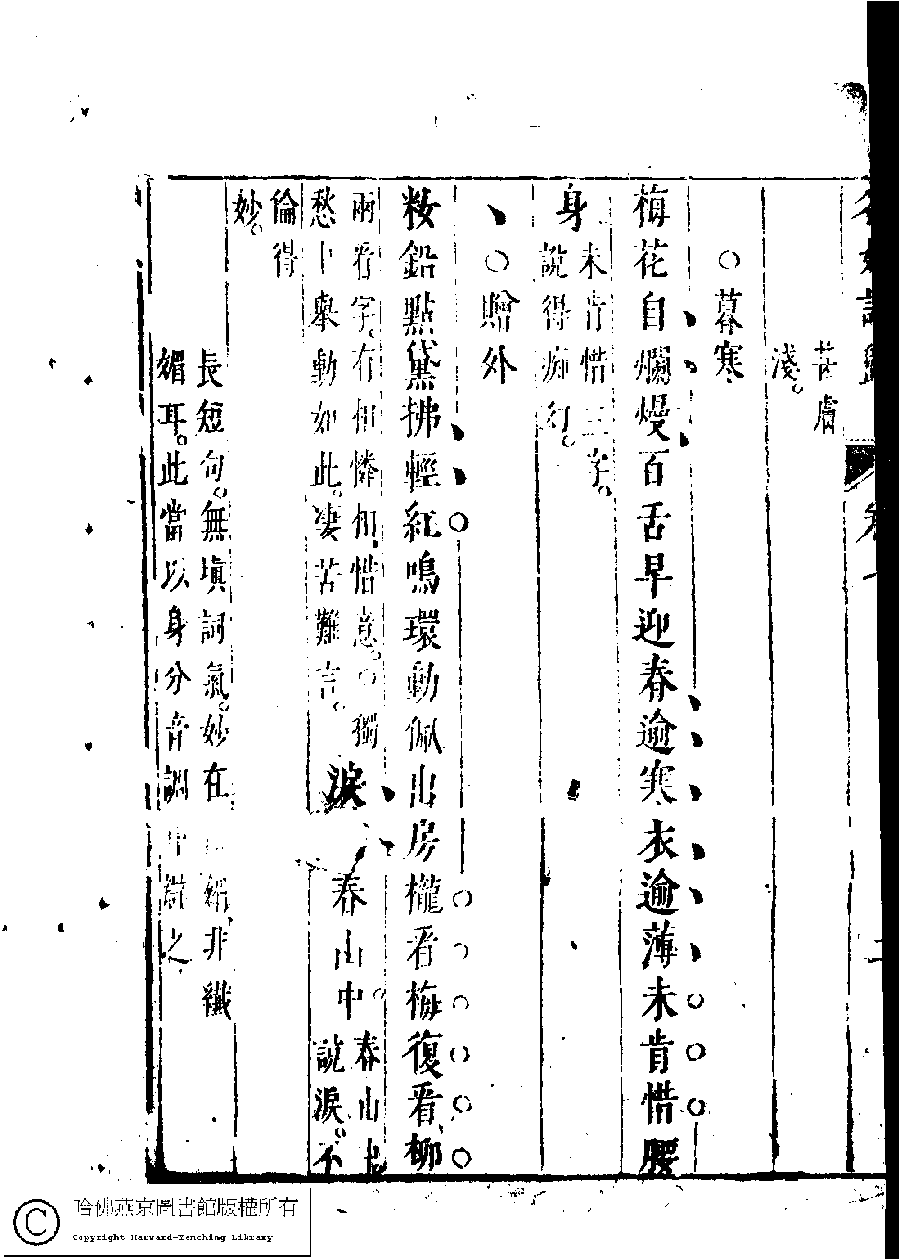 苦膚
淺。
○暮寒
梅花自爛熳百舌早迎春逾寒衣逾薄未肯惜腰
身
未肯惜三字。
說得痴幻。
○贈外
粧鉛點黛拂輕紅鳴環動佩出房櫳看梅復看柳
兩看字。有相憐相惜意。○獨
愁上舉動如此。凄苦難言。
淚 春山中
春山上
說淚。不
倫得
妙。
長短句。無填詞氣。妙在 非纖
媚耳。此當以身分音調中 之
哈佛燕京圖書館版權所有
Copyright Harvard-Yenching Library